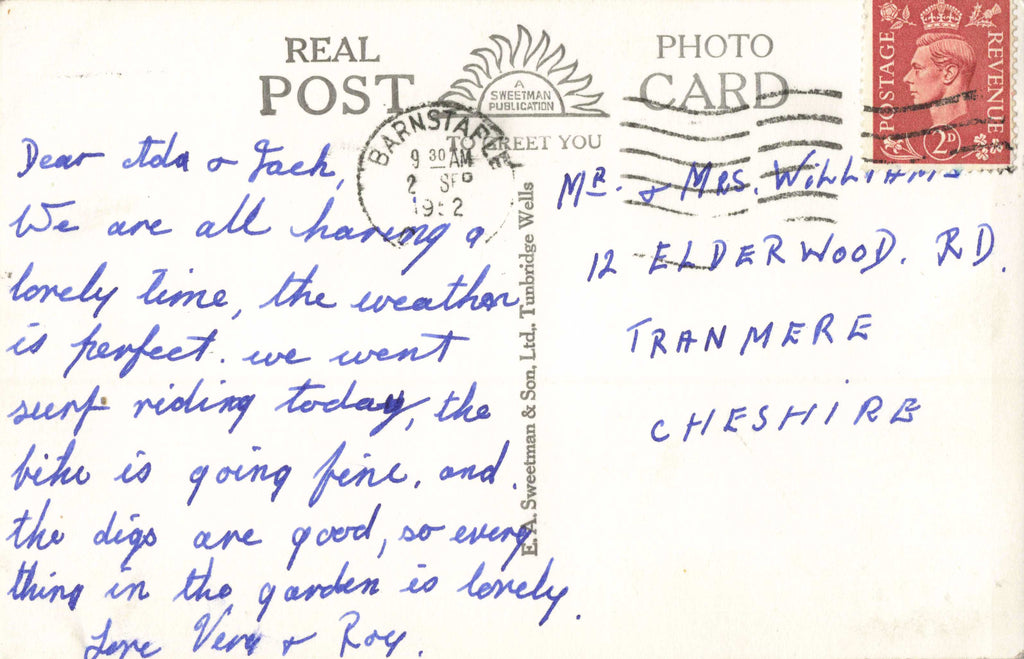 REAL PHOTO
POST CARD
A
SWEETMAN
PUBLICATION
TO GREET YOU
BARNSTAPLE
9 30 AM
2 SEP
1952
POSTAGE
REVENUE
2D
Dear Ada & Jack,
We are all having a
lovely time, the weather
is perfect. we went
surf riding today, the
bike is going fine, and
the digs are good, so every
thing in the garden is lovely.
Love Vera & Roy.
E. A. Sweetman & Son, Ltd., Tunbridge Wells
MR. & MRS. WILLIAMS
12 ELDERWOOD. RD.
TRANMERE
CHESHIRE